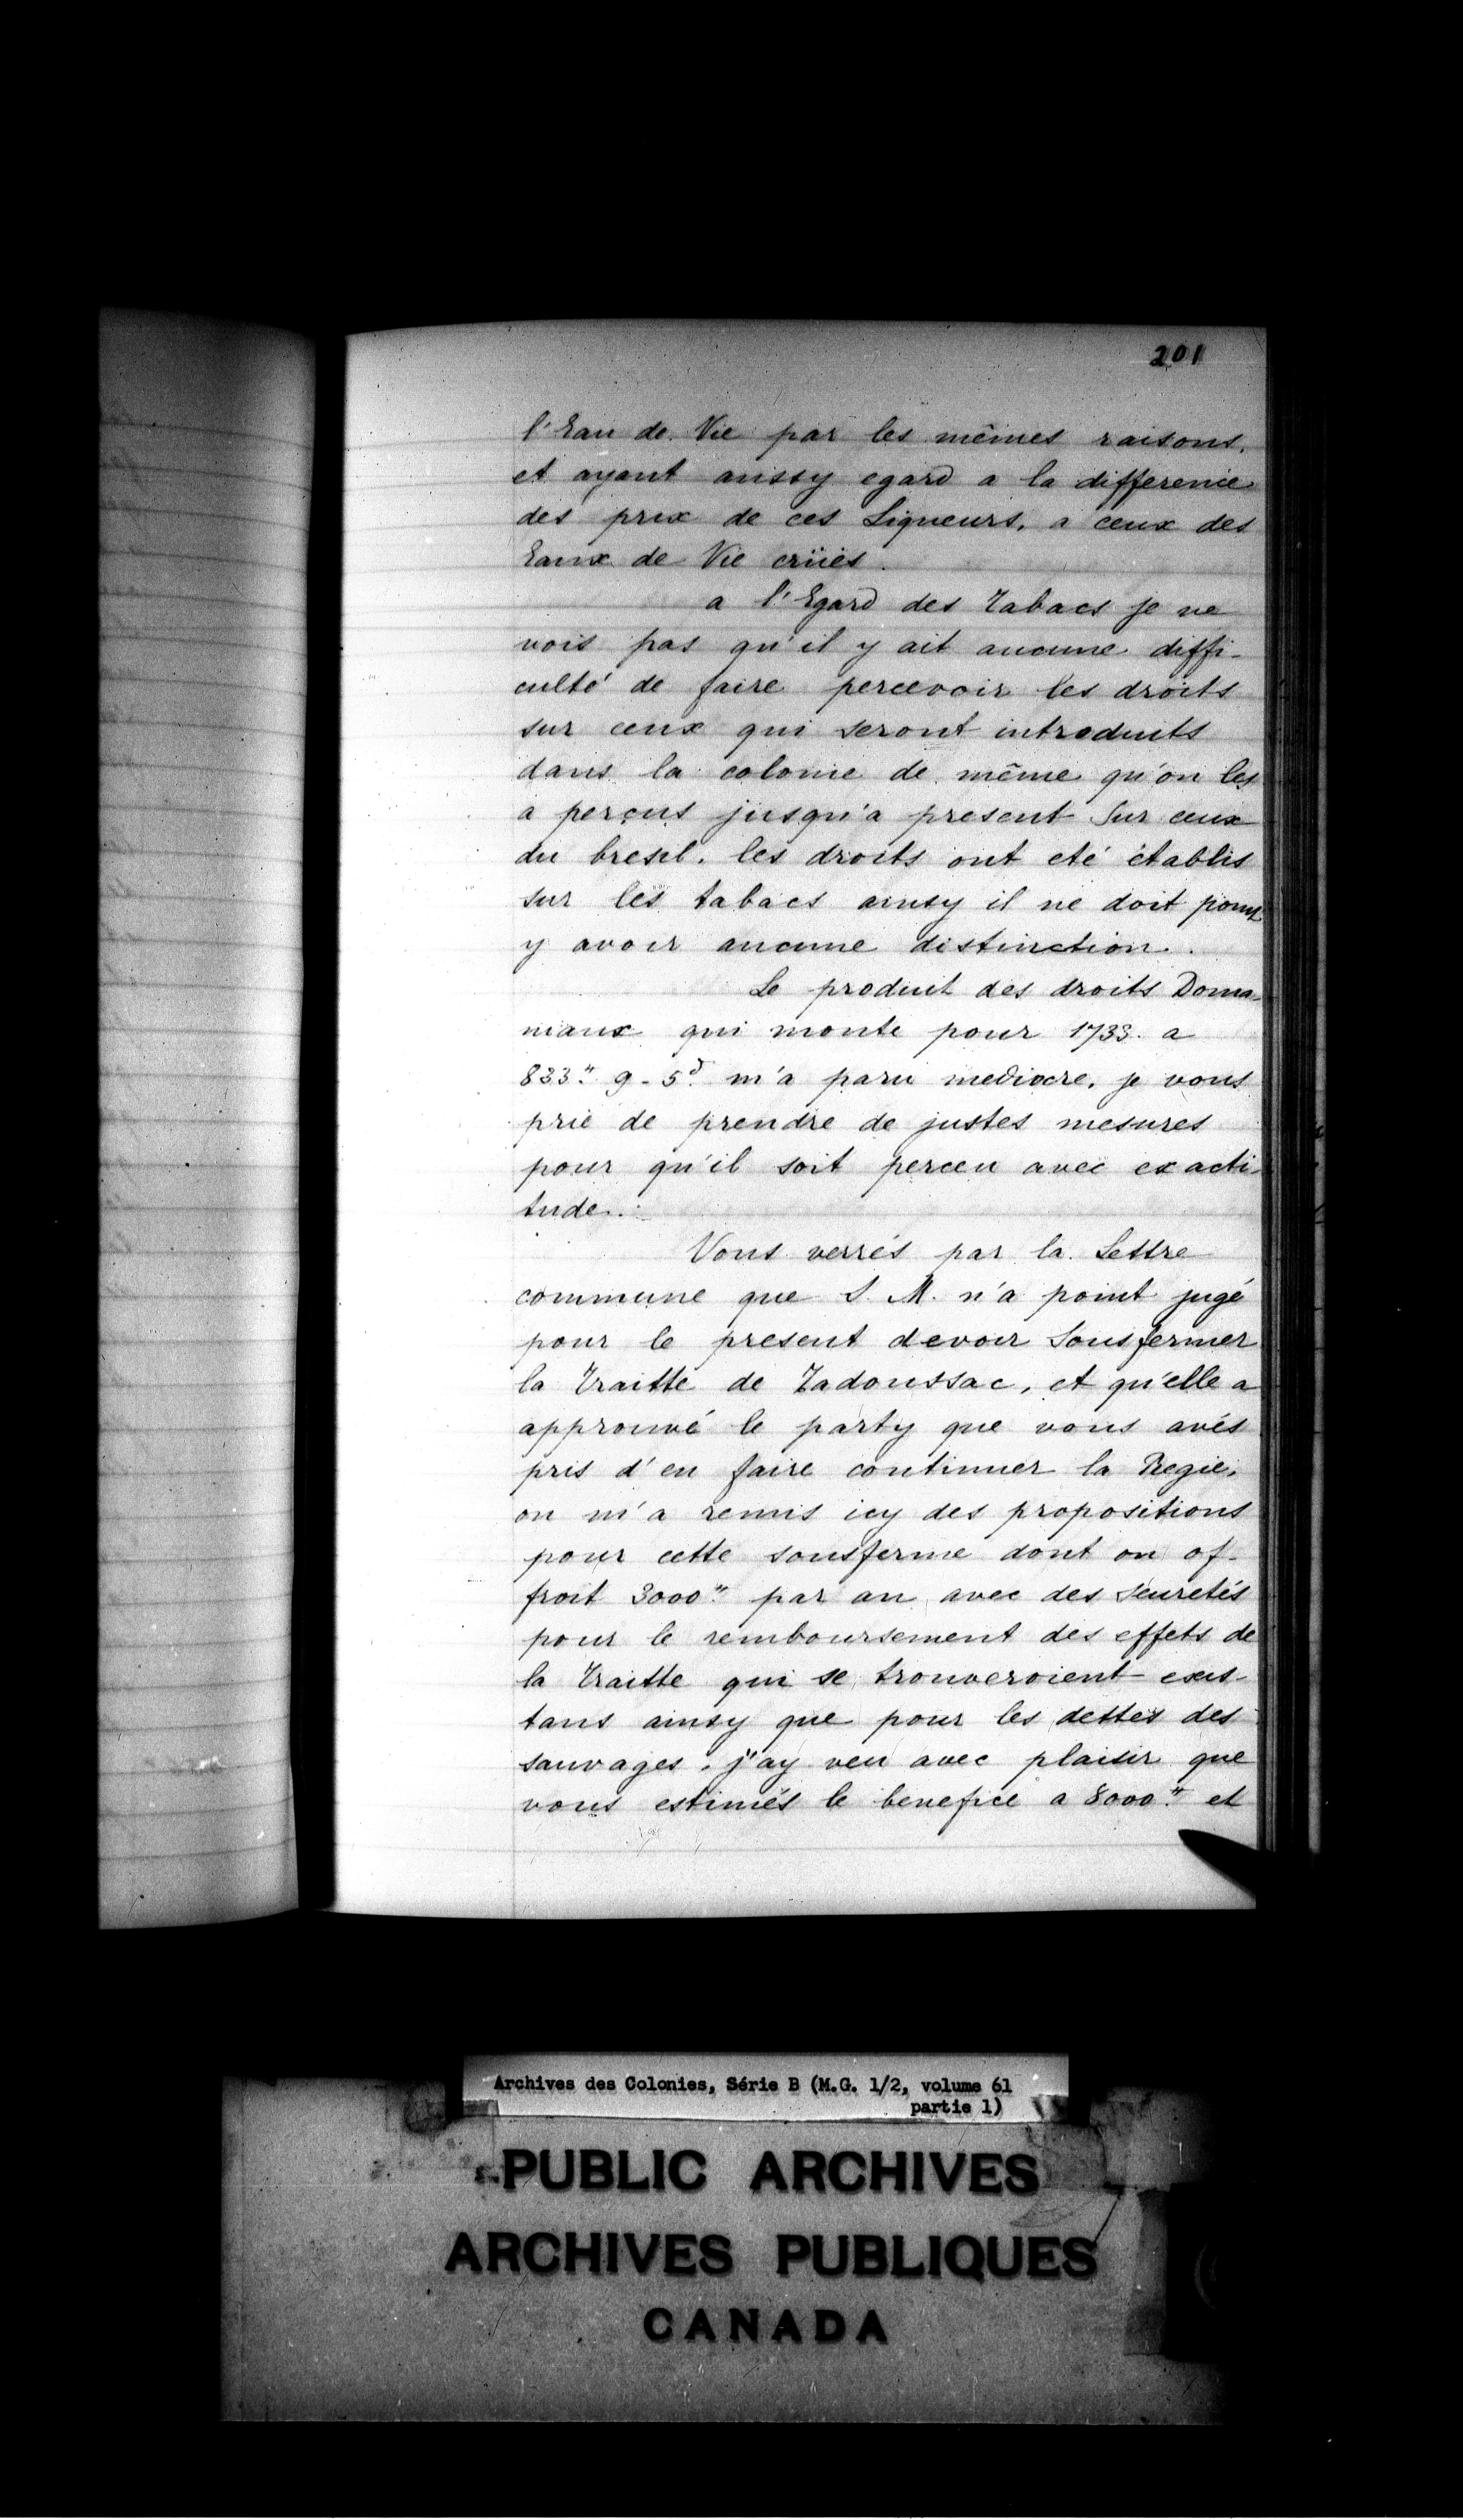 201
l'Eau de Vie par les mêmes raisons.
et ayant aussy egard a la difference
des prix de ces Liqueurs, a ceux des
Eaux de Vie crüies.
a l'Egard des Tabacs je ne
vois pas qu'il y ait aucune diffi-
culté de faire percevoir les droits
sur ceux qui seront introduits
dans la colonie de même qu'on les
a perçus jusqu'a present sur ceux
du bresil. les droits ont eté établis
sur les tabacs ainsy il ne doit point
y avoir aucune distinction.
Le produit des droits Doma-
niaux qui monte pour 1733. a
833.# 9 - 5.d m'a paru mediocre. je vous
prie de prendre de justes mesures
pour qu'il soit perceu avec exacti-
tude.
Vous verrés par la Lettre
commune que S. M. n'a point jugé
pour le present devoir sousfermer
la Traitte de Tadoussac, et qu'elle a
approuvé le party que vous avés
pris d'en faire continuer la Regie.
on m'a remis icy des propositions
pour cette sousferme dont on of-
froit 3000.# par an avec des seuretés
pour le remboursement des effets de
la Traitte qui se trouveroient exis-
tans ainsy que pour les dettes des
sauvages. j'ay veu avec plaisir que
vous estimés le benefice a 8000.# et
Archives des Colonies, Série B (M.G. 1/2, volume 61
partie 1)
PUBLIC ARCHIVES
ARCHIVES PUBLIQUES
CANADA